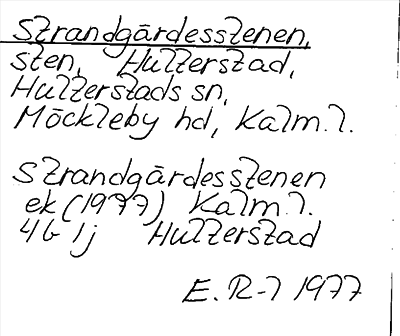 Strandgårdesstenen,
sten, Hulterstad,
Hulterstads sn,
Möckleby hd, Kalm. l.
Strandgårdesstenen
ek (1977) Kalm. l.
4G 1j Hulterstad
E. R-l 1977